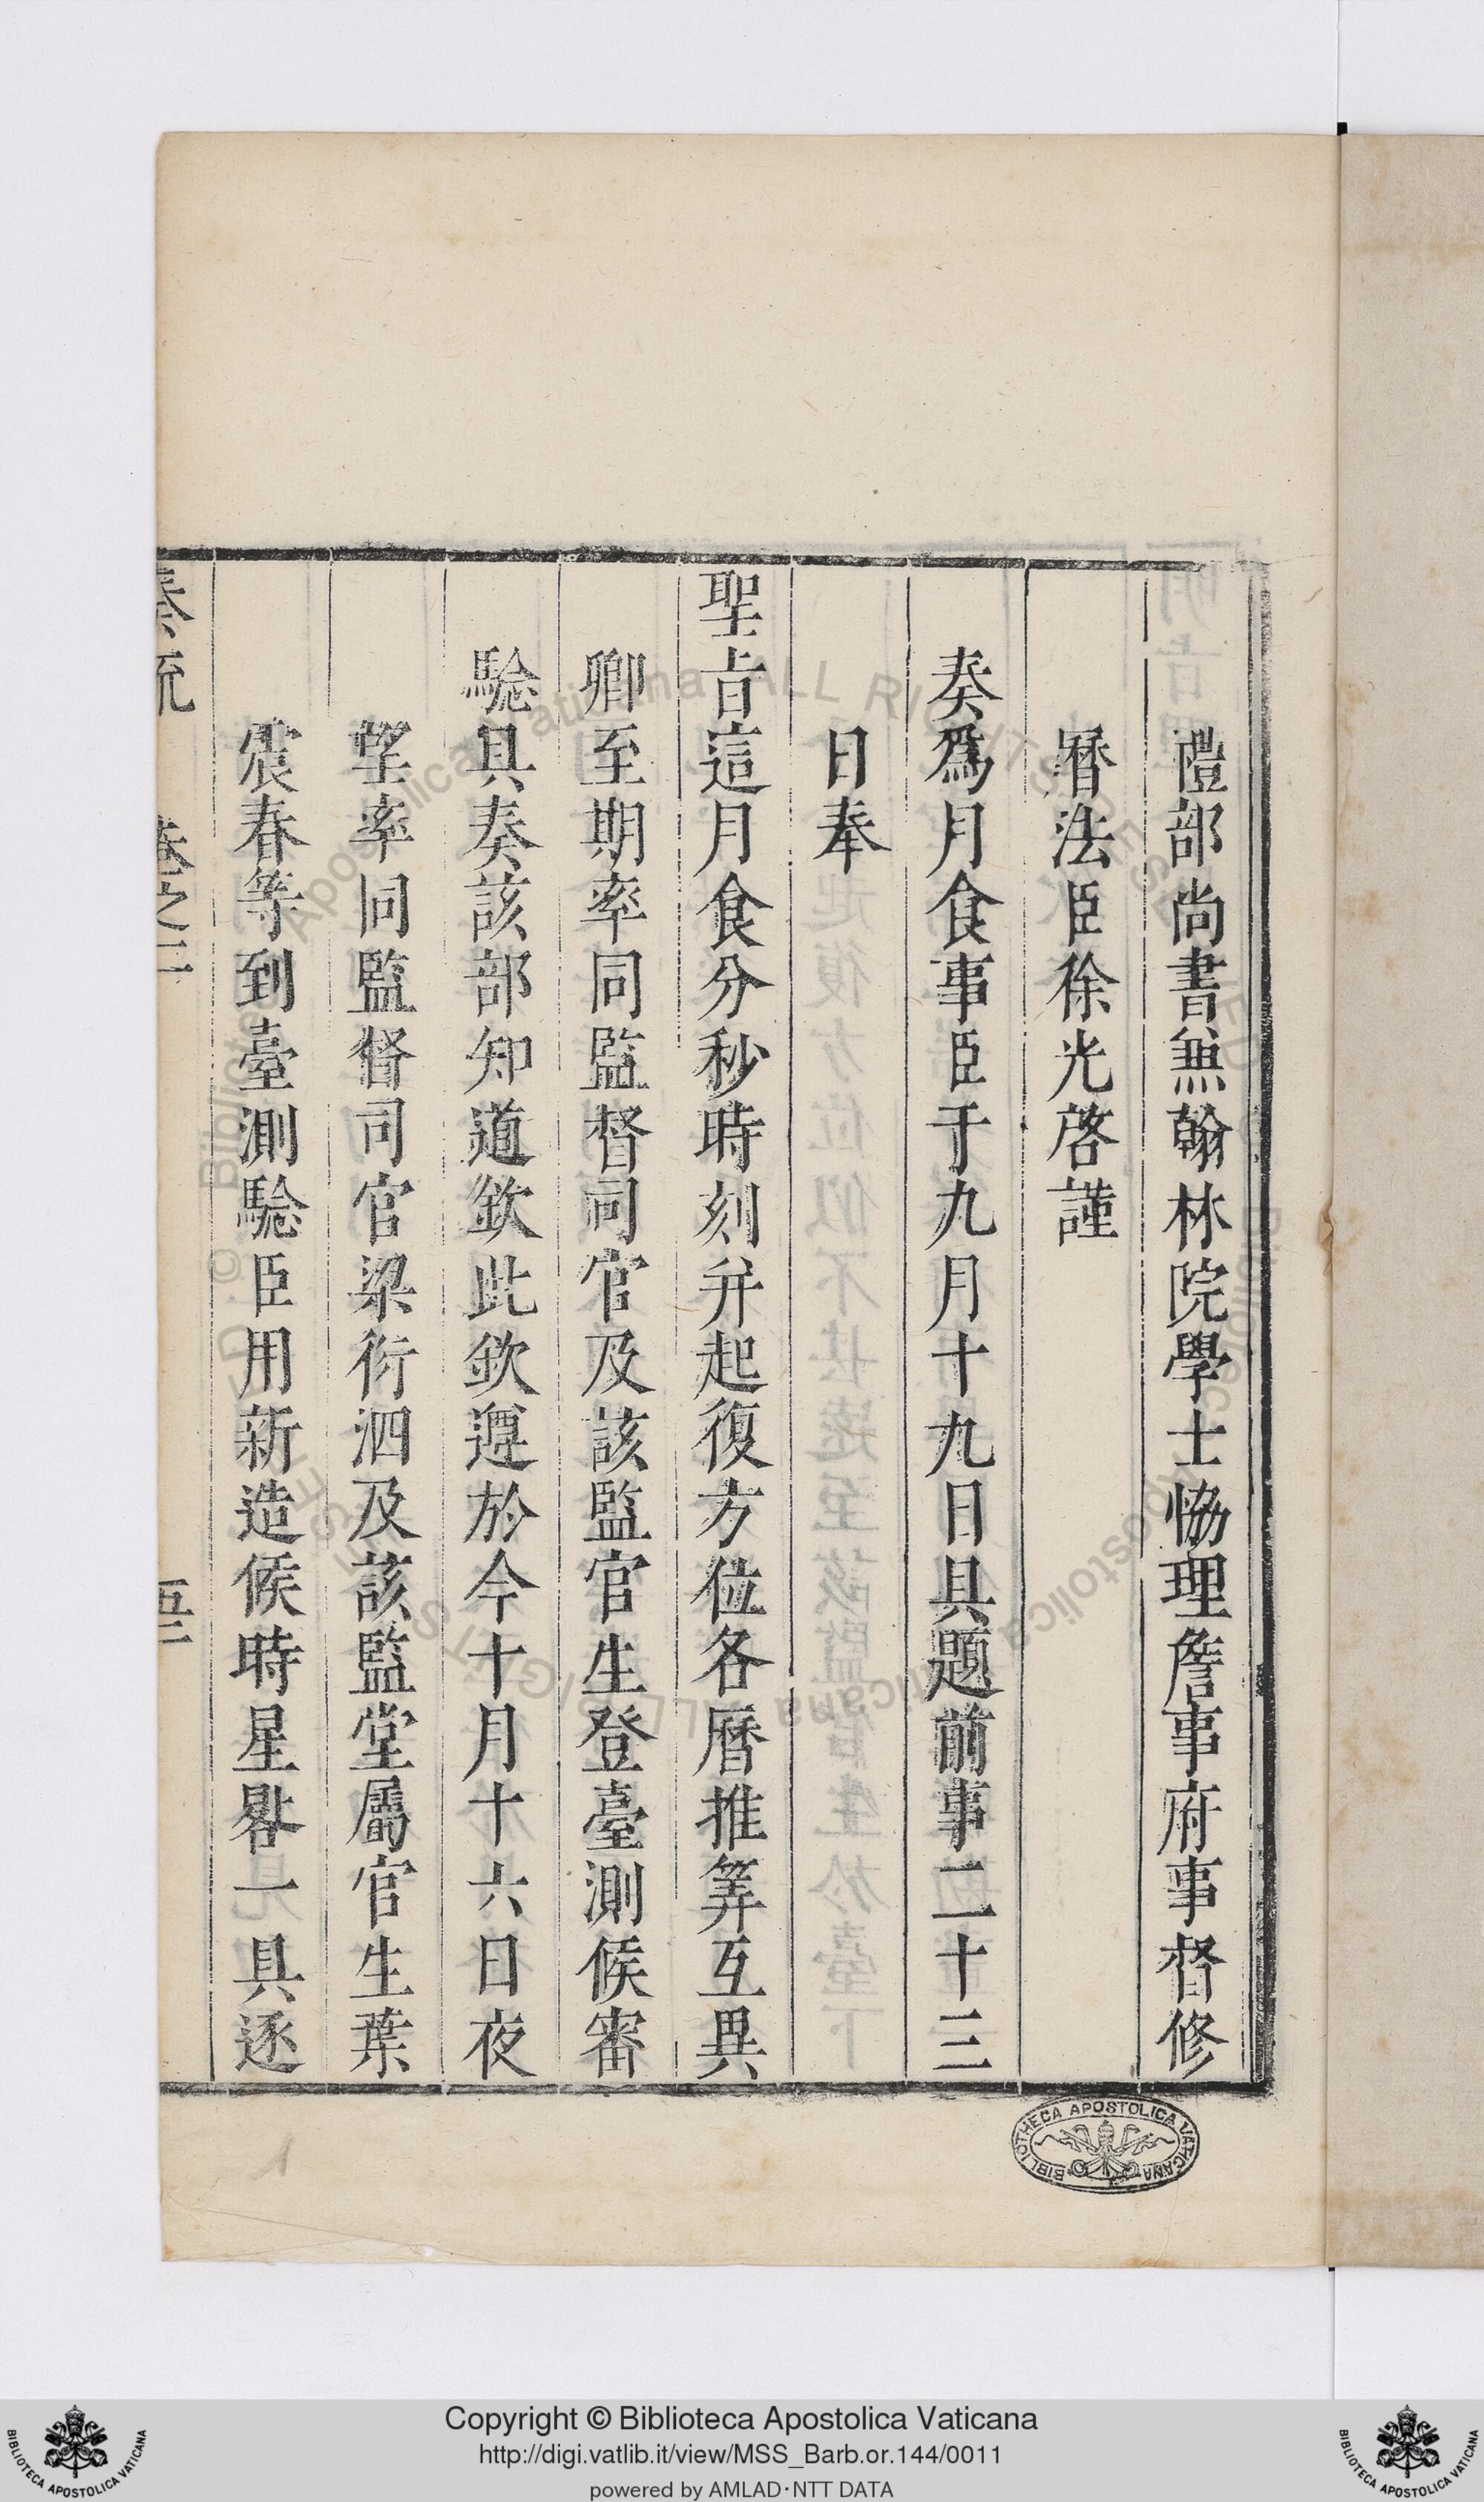 禮部尚書兼翰林院學士協理詹事府事督修
曆法臣徐光啓謹
奏為月食事臣于九月十九日具題前事二十三
日奉
聖旨這月食分秒時刻并起復方位各曆推筭互異
卿至期率同監督司官及該監官生登臺測候審
驗具奏該部知道欽此欽遵於今十月十六日夜
望率同監督司官梁衍泗及該監堂屬官生葉
震春等到臺測驗臣用新造候時星晷一具逐
奏疏 卷之二
BIBLIOTHECA APOSTOLICA VATICANA
Copyright © Biblioteca Apostolica Vaticana
http://digi.vatlib.it/view/MSS_Barb.or.144/0011
powered by AMLAD·NTT DATA
BIBLIOTECA APOSTOLICA VATICANA
BIBLIOTECA APOSTOLICA VATICANA